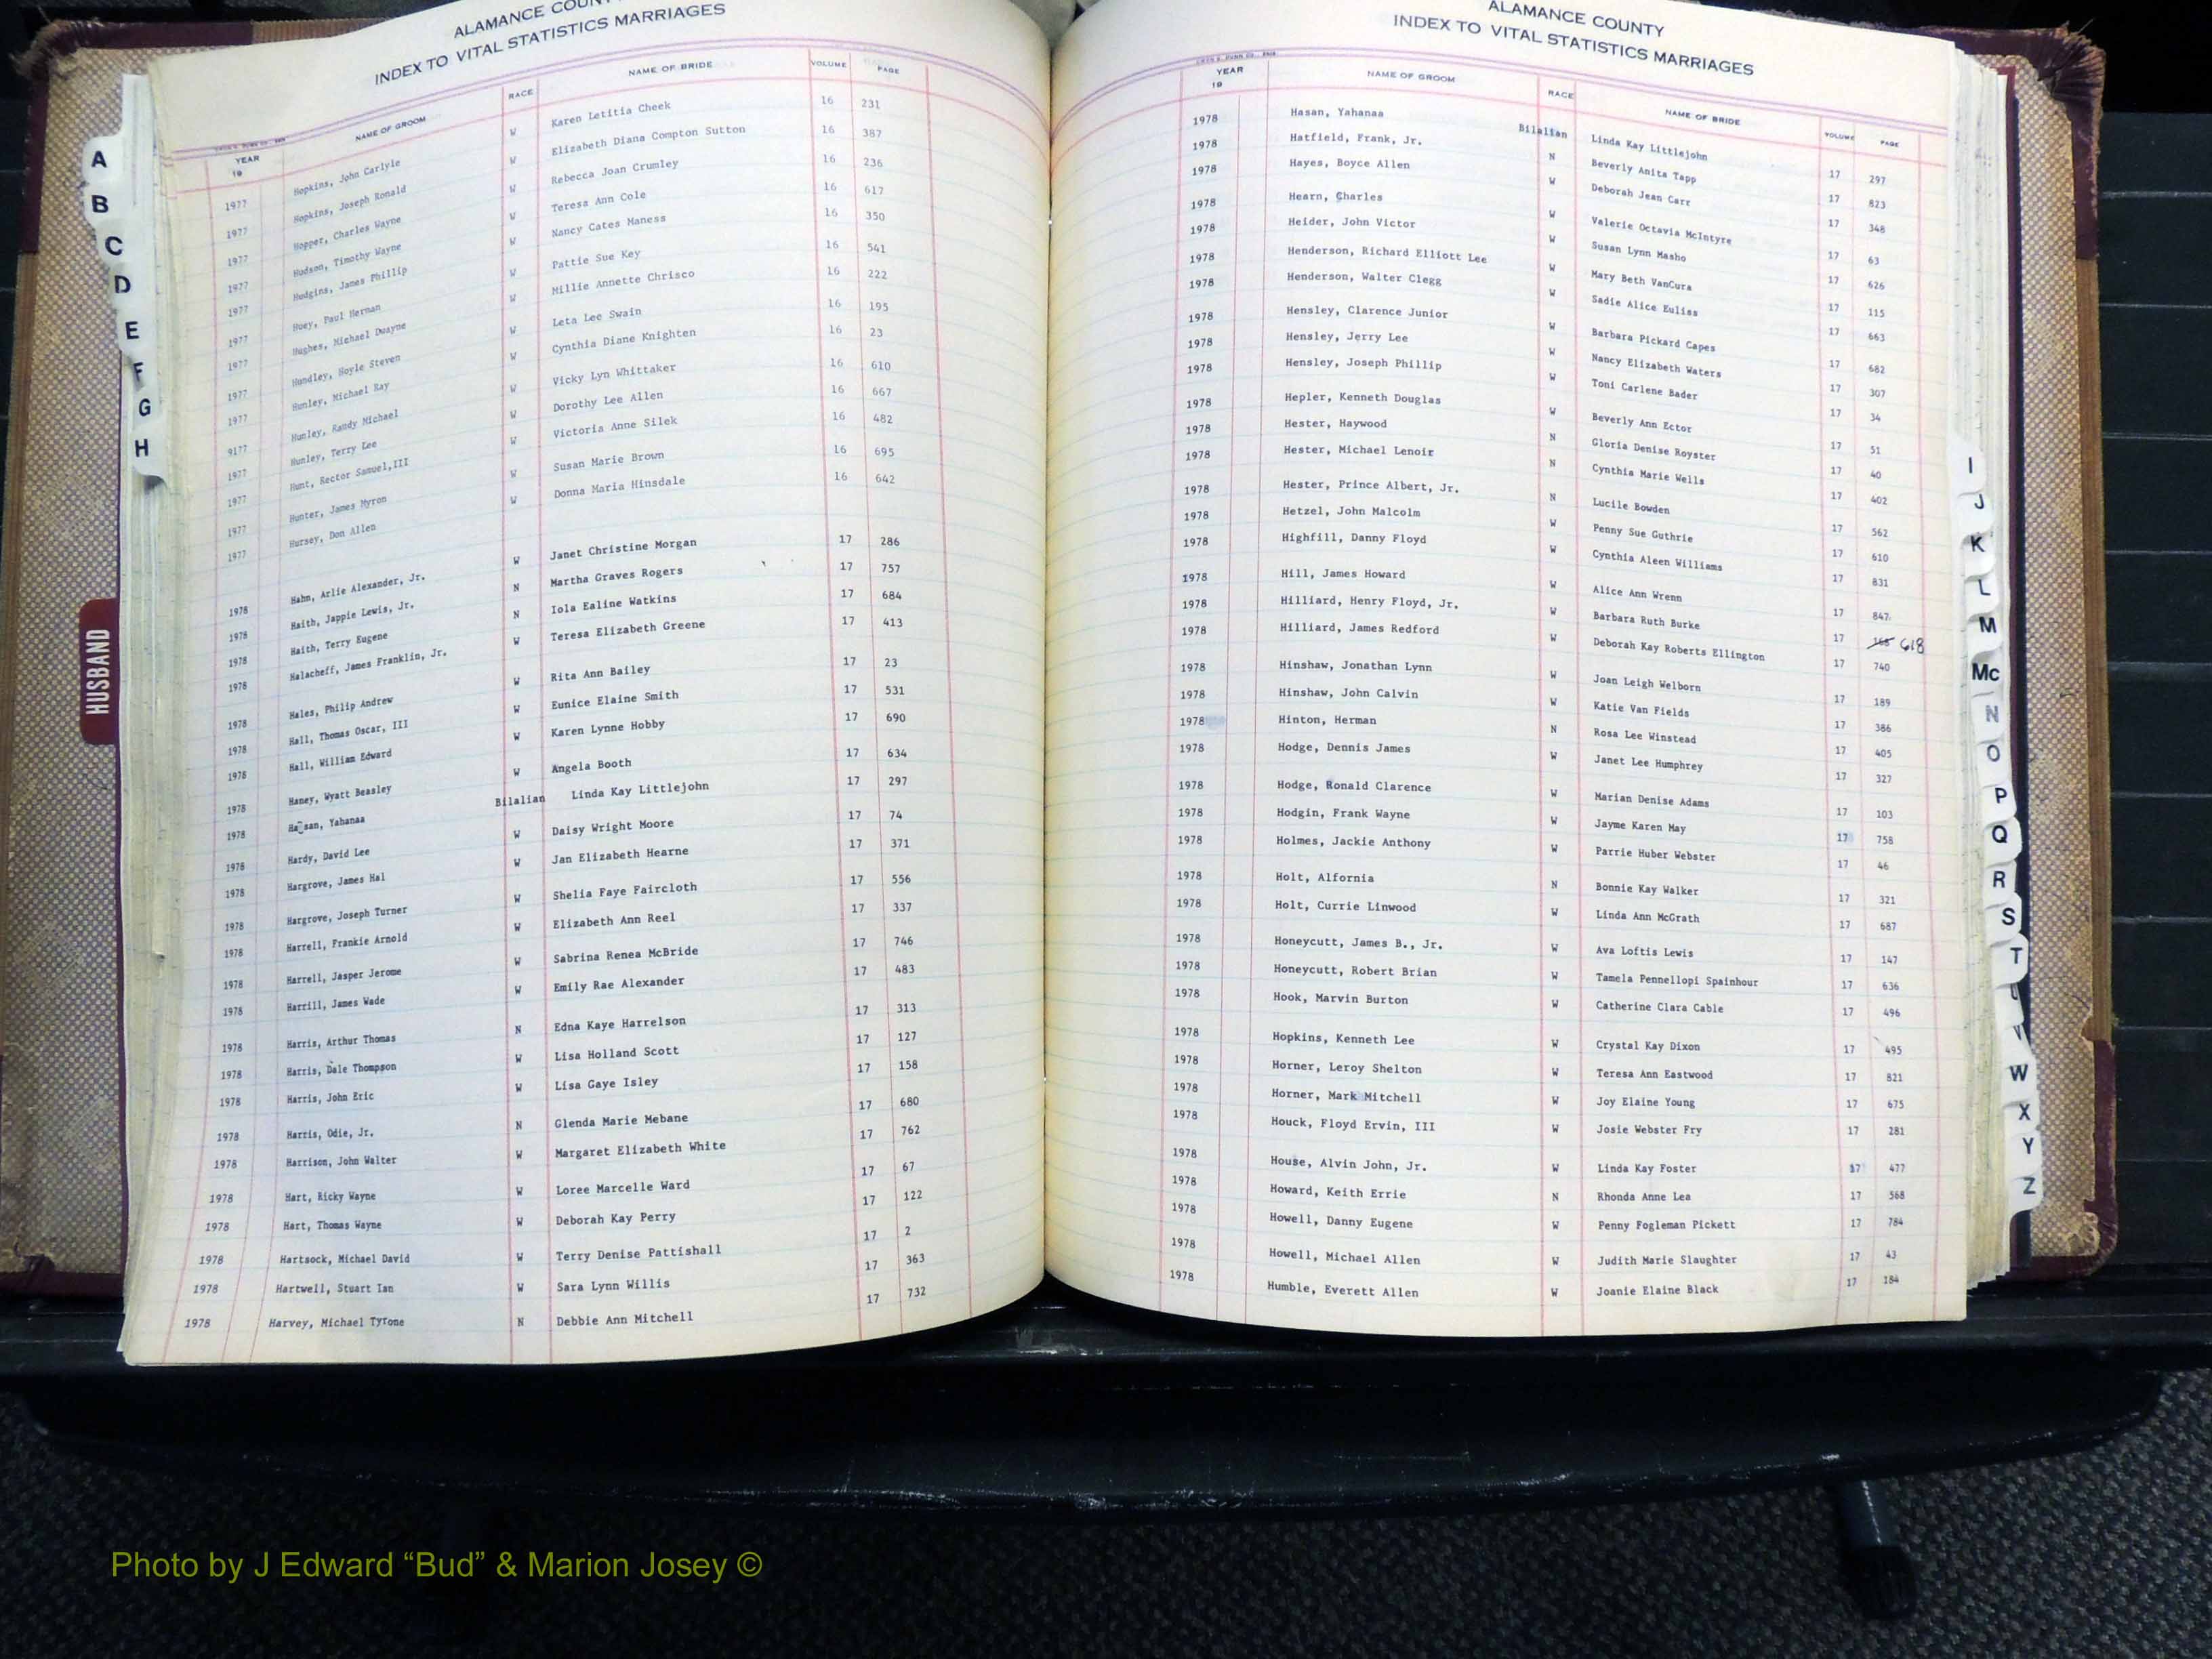 ALAMANCE COUNTY
INDEX TO VITAL STATISTICS MARRIAGES
YEAR 19 NAME OF GROOM RACE NAME OF BRIDE VOLUME PAGE
1977 Hopkins, John Carlyle W Karen Letitia Cheek 16 231
1977 Hopkins, Joseph Ronald W Elizabeth Diana Compton Sutton 16 387
1977 Hopper, Charles Wayne W Rebecca Joan Crumley 16 236
1977 Hudson, Timothy Wayne W Teresa Ann Cole 16 617
1977 Hudgins, James Phillip W Nancy Cates Maness 16 350
1977 Huey, Paul Herman W Pattie Sue Key 16 541
1977 Hughes, Michael Dwayne W Millie Annette Chrisco 16 222
1977 Hundley, Hoyle Steven W Leta Lee Swain 16 195
1977 Hunley, Michael Ray W Cynthia Diane Knighten 16 23
9177 Hunley, Randy Michael W Vicky Lyn Whittaker 16 610
1977 Hunley, Terry Lee W Dorothy Lee Allen 16 667
1977 Hunt, Rector Samuel,III W Victoria Anne Silek 16 482
1977 Hunter, James Myron W Susan Marie Brown 16 695
1977 Hursey, Don Allen W Donna Maria Hinsdale 16 642
1978 Hahn, Arlie Alexander, Jr. W Janet Christine Morgan 17 286
1978 Haith, Jappie Lewis, Jr. N Martha Graves Rogers 17 757
1978 Haith, Terry Eugene N Iola Ealine Watkins 17 684
1978 Halacheff, James Franklin, Jr. W Teresa Elizabeth Greene 17 413
1978 Hales, Philip Andrew W Rita Ann Bailey 17 23
1978 Hall, Thomas Oscar, III W Eunice Elaine Smith 17 531
1978 Hall, William Edward W Karen Lynne Hobby 17 690
1978 Haney, Wyatt Beasley W Angela Booth 17 634
1978 Hasan, Yahanaa Bilalian Linda Kay Littlejohn 17 297
1978 Hardy, David Lee W Daisy Wright Moore 17 74
1978 Hargrove, James Hal W Jan Elizabeth Hearne 17 371
1978 Hargrove, Joseph Turner W Shelia Faye Faircloth 17 556
1978 Harrell, Frankie Arnold W Elizabeth Ann Reel 17 337
1978 Harrell, Jasper Jerome W Sabrina Renea McBride 17 746
1978 Harrill, James Wade W Emily Rae Alexander 17 483
1978 Harris, Arthur Thomas N Edna Kaye Harrelson 17 313
1978 Harris, Dale Thompson W Lisa Holland Scott 17 127
1978 Harris, John Eric W Lisa Gaye Isley 17 158
1978 Harris, Odie, Jr. N Glenda Marie Mebane 17 680
1978 Harrison, John Walter W Margaret Elizabeth White 17 762
1978 Hart, Ricky Wayne W Loree Marcelle Ward 17 67
1978 Hart, Thomas Wayne W Deborah Kay Perry 17 122
1978 Hartsock, Michael David W Terry Denise Pattishall 17 2
1978 Hartwell, Stuart Ian W Sara Lynn Willis 17 363
1978 Harvey, Michael Tyrone N Debbie Ann Mitchell 17 732
A
B
C
D
E
F
G
H
HUSBAND
ALAMANCE COUNTY
INDEX TO VITAL STATISTICS MARRIAGES
YEAR 19 NAME OF GROOM RACE NAME OF BRIDE VOLUME PAGE
1978 Hasan, Yahanaa Bilalian Linda Kay Littlejohn 17 297
1978 Hatfield, Frank, Jr. N Beverly Anita Tapp 17 823
1978 Hayes, Boyce Allen W Deborah Jean Carr 17 348
1978 Hearn, Charles W Valerie Octavia McIntyre 17 63
1978 Heider, John Victor W Susan Lynn Masho 17 626
1978 Henderson, Richard Elliott Lee W Mary Beth VanCura 17 115
1978 Henderson, Walter Clegg W Sadie Alice Euliss 17 663
1978 Hensley, Clarence Junior W Barbara Pickard Capes 17 682
1978 Hensley, Jerry Lee W Nancy Elizabeth Waters 17 307
1978 Hensley, Joseph Phillip W Toni Carlene Bader 17 34
1978 Hepler, Kenneth Douglas W Beverly Ann Ector 17 51
1978 Hester, Haywood N Gloria Denise Royster 17 40
1978 Hester, Michael Lenoir N Cynthia Marie Wells 17 402
1978 Hester, Prince Albert, Jr. N Lucile Bowden 17 562
1978 Hetzel, John Malcolm W Penny Sue Guthrie 17 610
1978 Highfill, Danny Floyd W Cynthia Aleen Williams 17 831
1978 Hill, James Howard W Alice Ann Wrenn 17 847
1978 Hilliard, Henry Floyd, Jr. W Barbara Ruth Burke 17 618
1978 Hilliard, James Redford W Deborah Kay Roberts Ellington 17 740
1978 Hinshaw, Jonathan Lynn W Joan Leigh Welborn 17 189
1978 Hinshaw, John Calvin W Katie Van Fields 17 386
1978 Hinton, Herman N Rosa Lee Winstead 17 405
1978 Hodge, Dennis James W Janet Lee Humphrey 17 327
1978 Hodge, Ronald Clarence W Marian Denise Adams 17 103
1978 Hodgin, Frank Wayne W Jayme Karen May 17 758
1978 Holmes, Jackie Anthony W Parrie Huber Webster 17 46
1978 Holt, Alfornia N Bonnie Kay Walker 17 321
1978 Holt, Currie Linwood W Linda Ann McGrath 17 687
1978 Honeycutt, James B., Jr. W Ava Loftis Lewis 17 147
1978 Honeycutt, Robert Brian W Tamela Pennellopi Spainhour 17 636
1978 Hook, Marvin Burton W Catherine Clara Cable 17 496
1978 Hopkins, Kenneth Lee W Crystal Kay Dixon 17 495
1978 Horner, Leroy Shelton W Teresa Ann Eastwood 17 821
1978 Horner, Mark Mitchell W Joy Elaine Young 17 675
1978 Houck, Floyd Ervin, III W Josie Webster Fry 17 281
1978 House, Alvin John, Jr. W Linda Kay Foster 17 477
1978 Howard, Keith Errie N Rhonda Anne Lea 17 568
1978 Howell, Danny Eugene W Penny Fogleman Pickett 17 784
1978 Howell, Michael Allen W Judith Marie Slaughter 17 43
1978 Humble, Everett Allen W Joanie Elaine Black 17 184
I
J
K
L
M
Mc
N
O
P
Q
R
S
T
V
W
X
Y
Z
Photo by J Edward “Bud” & Marion Josey ©